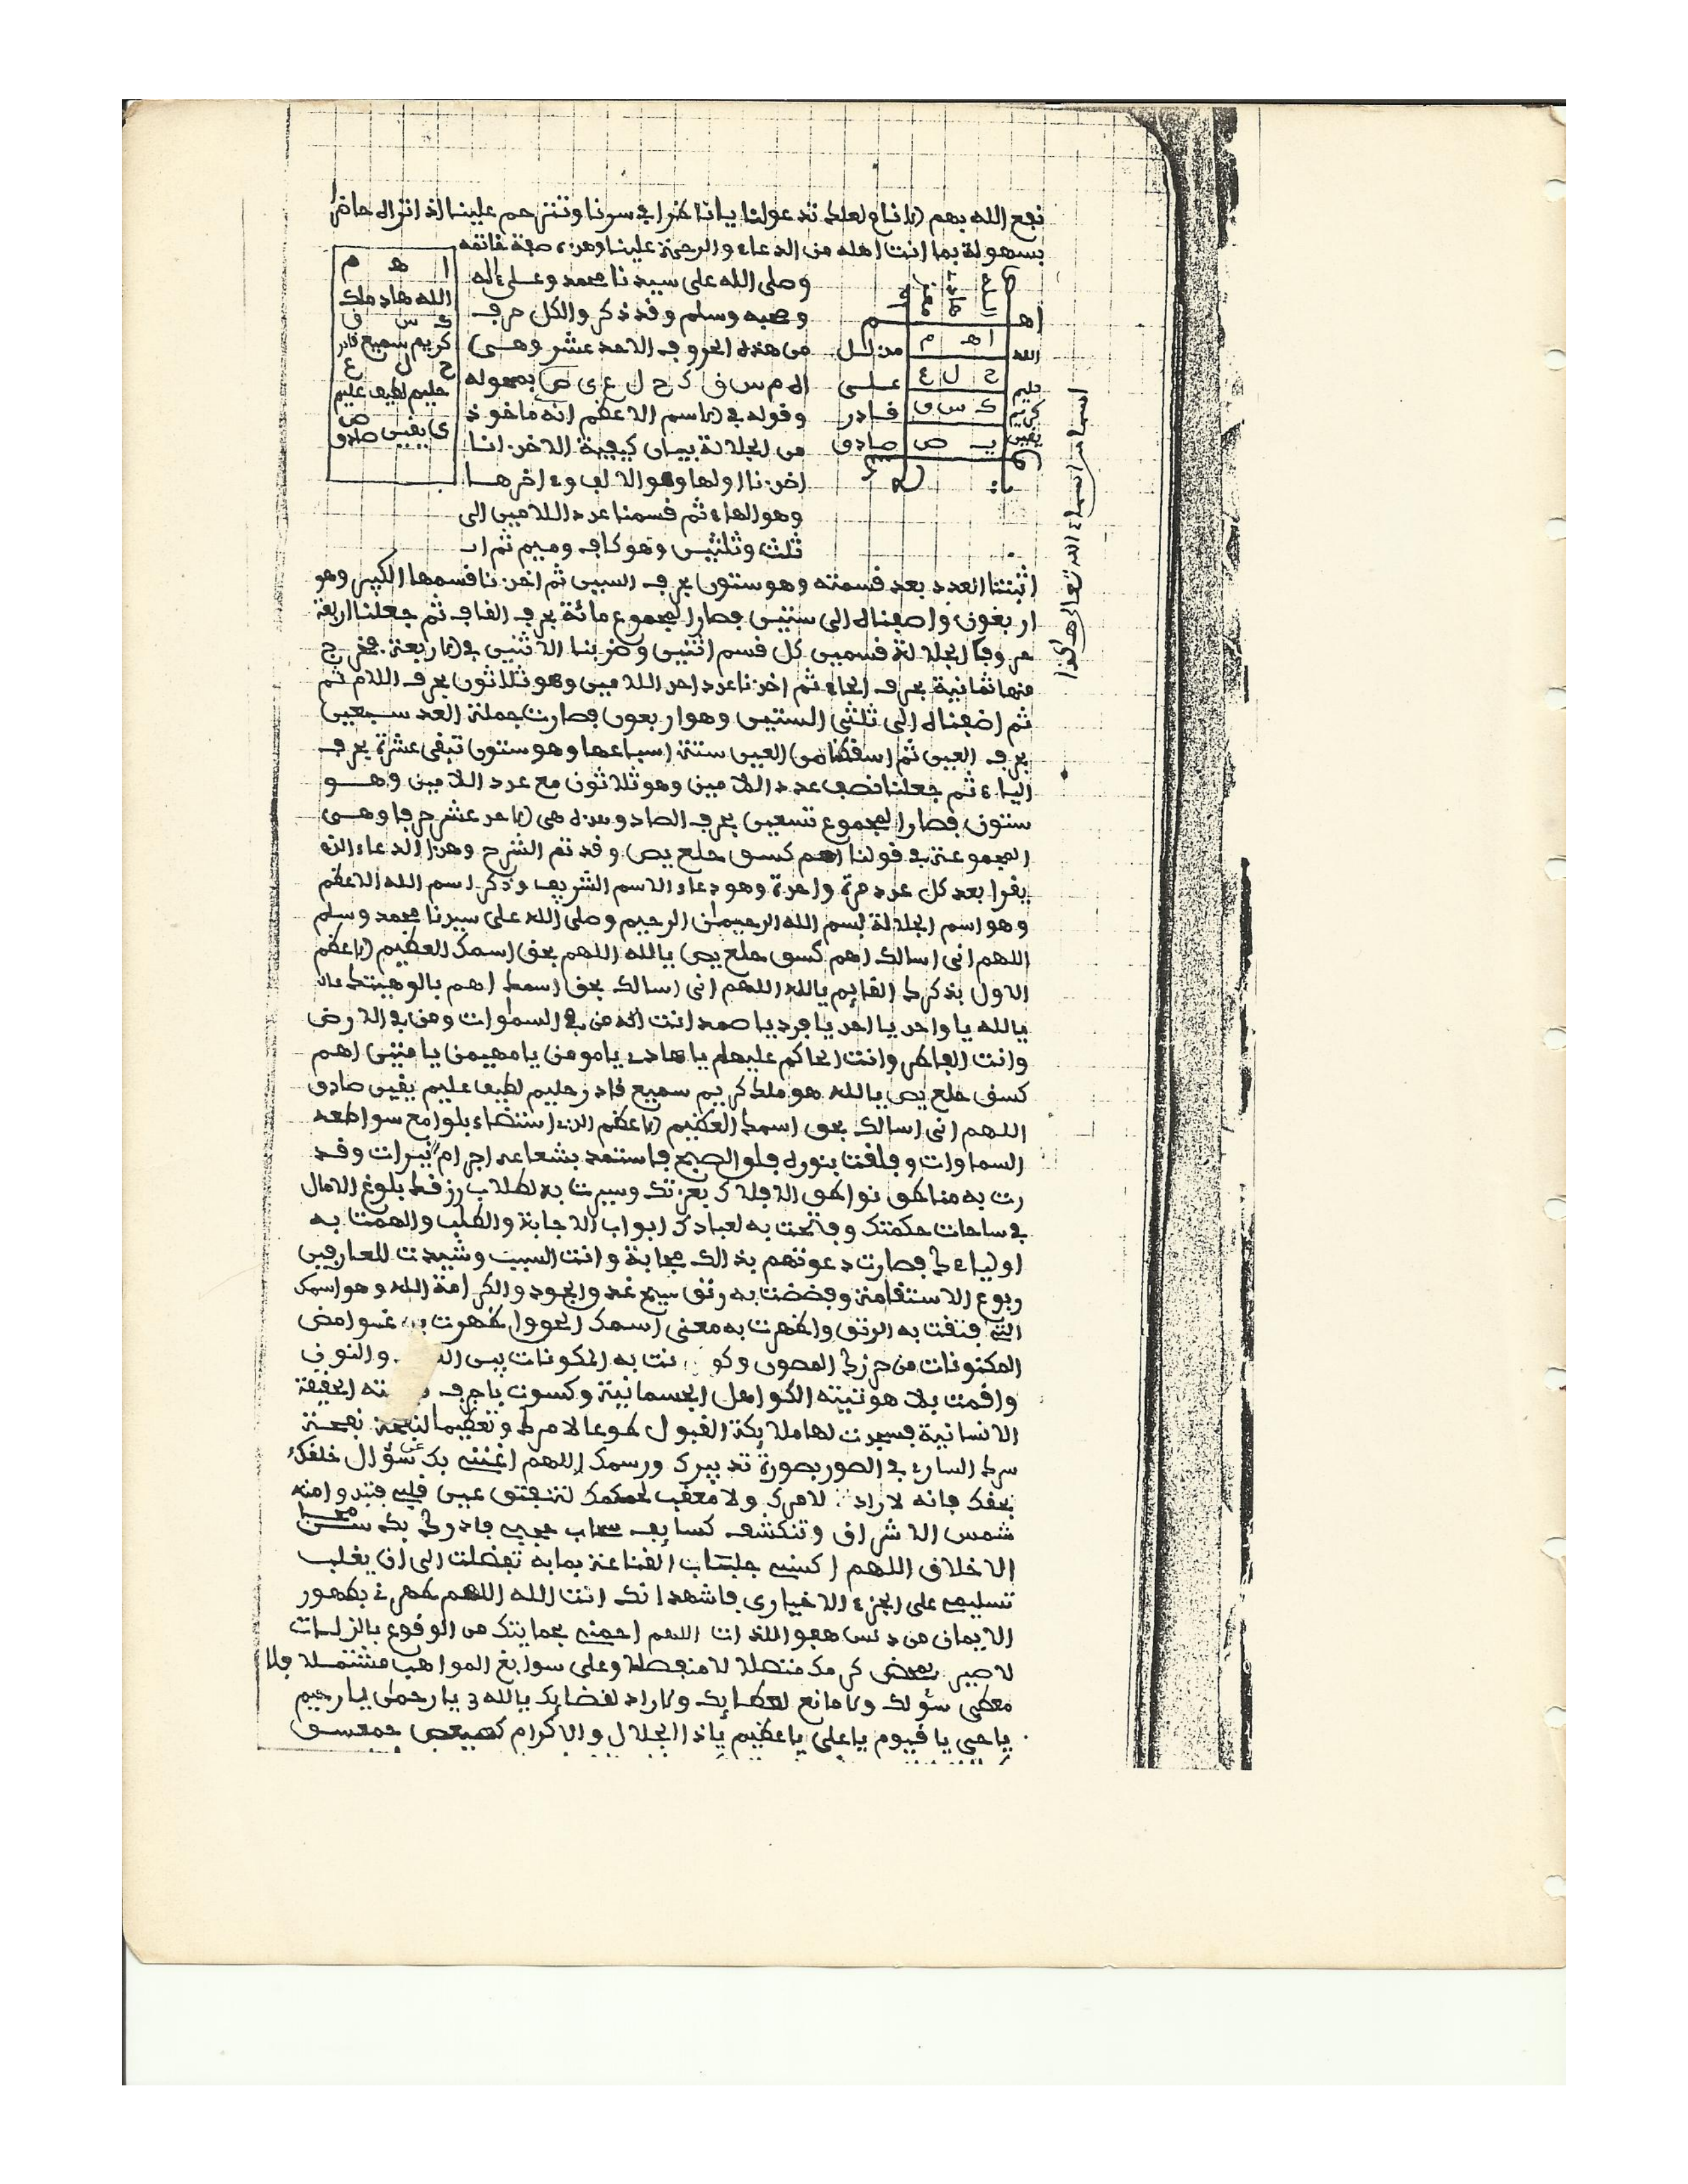 نفع الله بهم تدعولنا يا ناظرا في سرنا وتترحم علينا
بسهولة بما انت اهله من الدعاء والرحمة علينا وهذه صفة خاتمه
وصلى الله على سيدنا محمد وعلى ءاله
وصحبه وسلم وقد ذكر والكل حرف
من هذه الحروف الاحد عشر وهي
ا ه م س ق ك ح ل ع ى ص
وقوله في الاسم الاعظم انه ماخوذ
من الجلالة بيان كيفية الاخذ انا
اخذنا اولها وهو الالف وءاخرها
وهو الهاء ثم قسمنا عدد اللامين الى
ثلث وثلثين وهو كاف وميم ثم ان
ا ه م
الله هاد ملك
ك س ق
كريم سميع قادر
ح ل ع
حليم لطيف عليم
ى ص
يقين صادق
ا ه م
ح ل ع
ك س ق
ي ص
الله
حليم
كريم
يقين
على
قادر
صادق
اسما من اسماء الله تعالى هاكذا
اثبتنا العدد بعد قسمته وهو ستون بحرف السين ثم اخذنا قسمها الكبير وهو
اربعون واضفناه الى ستين فصار المجموع مائة بحرف القاف ثم جعلنا اربعة
حروف الجلالة قسمين كل قسم اثنين وضربنا الاثنين في الاربعة فخرج
منها ثمانية بحرف الحاء ثم اخذنا عدد احد اللامين وهو ثلاثون بحرف اللام ثم
ثم اضفناه الى ثلثي الستين وهو اربعون فصارت جملة العدد سبعين
بحرف العين ثم اسقطنا من العين ستة اسباعها وهو ستون تبقى عشرة بحرف
الياء ثم جعلنا نصف عدد اللامين وهو ثلاثون مع عدد اللامين وهو
ستون فصار المجموع تسعين بحرف الصاد وهذه هي الاحد عشر حرفا وهي
المجموعة في قولنا اهم كسق حلع يص وقد تم الشرح وهذا الدعاء الذي
يقرا بعد كل عدد مرة واحدة وهو دعاء الاسم الشريف وذكر اسم الله الاعظم
وهو اسم الجلالة بسم الله الرحمان الرحيم وصلى الله على سيدنا محمد وسلم
اللهم اني اسالك اهم كسق حلع يص يالله اللهم بحق اسمك العظيم الاعظم
الاول بذكرك القايم يالله اللهم اني اسالك بحق اسمك اهم بالوهيتك
يالله يا واحد يا احد يا فرد يا صمد انت اله من في السماوات ومن في الارض
وانت الفاطر وانت الحاكم عليهم يا هادي يا مومن يا مهيمن يا متين اهم
كسق حلع يص يالله هو ملك كريم سميع قادر حليم لطيف عليم يقين صادق
اللهم اني اسالك بحق اسمك العظيم الاعظم الذي استضاء بلوامع سواطعه
السماوات وفلقت بنوره فلق الصبح فاستمد بشعاعه اجرام نيرات وقد
رت به مناطق نواطق الافلاك بعزتك وسيرت به لطلاب رزقك بلوغ الامال
في ساحات حكمتك وفتحت به لعبادك ابواب الاجابة والطلب والهمت به
اولياءك فصارت دعوتهم بذالك مجابة وانت السبب وشيدت للعارفين
ربوع الاستقامة والجود والكرامة الله وهو اسمك
فتقت به الرتق واظهرت به معنى اسمك وظهرت به غوامض
المكنونات من حرزك المصون به المكونات بين والنون
واقمت بلاهوتيته الجسمانية وكسوت الحقيقة
الانسانية فسجدت لها ملايكة القبول طوعا لامرك وتعظيما لنفحة
سرك الساري في الصور بصورة تدبيرك ورسمك اللهم اغنني بك عن سؤال خلقك
بحقك فانه لا راد لامرك ولا معقب لحكمك قلبي
شمس الاشراق وتنكشف سحاب
الاخلاق اللهم اكسني جلباب القناعة بما به تفضلت الى ان يغلب
تسليمي على الجزء الاختياري فاشهد انك انت الله اللهم طهرني بظهور
الايمان من دنس هفو اللذات اللهم احمني بحمايتك من الوقوع بالزلات
كرمك متصلة لا منفصلة وعلى سوابغ المواهب مشتملة فلا
معطي سؤلك ولا مانع لعطايك ولا راد لقضايك يالله يا رحمان يا رحيم
يا حي يا قيوم يا علي يا عظيم يا ذا الجلال والاكرام كهيعص حمعسق